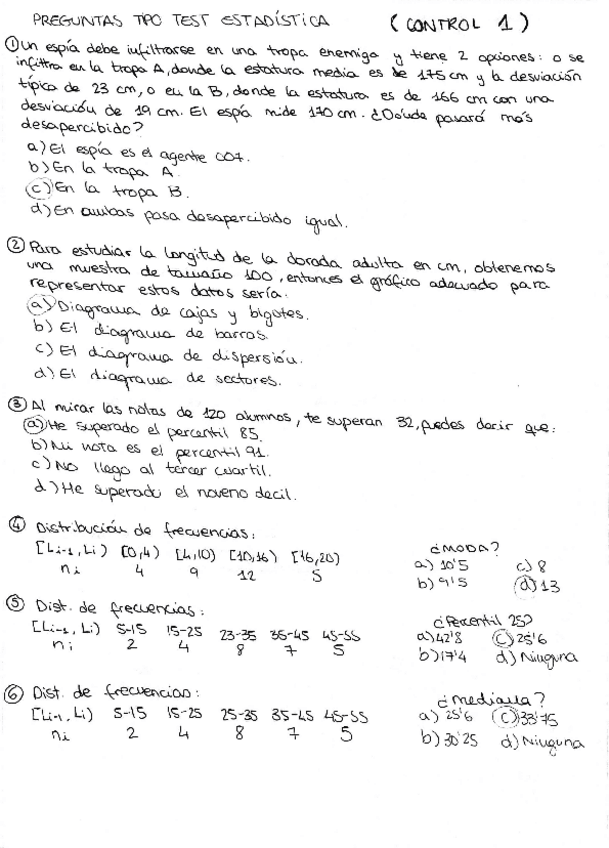 PREGUNTAS TIPO TEST ESTADÍSTICA (CONTROL 1)
① Un espía debe infiltrarse en una tropa enemiga y tiene 2 opciones: o se
infiltra en la tropa A, donde la estatura media es de 175 cm y la desviación
típica de 23 cm, o en la B, donde la estatura es de 166 cm con una
desviación de 19 cm. El espía mide 170 cm. ¿Dónde pasará más
desapercibido?
a) El espía es el agente 007.
b) En la tropa A.
c) En la tropa B.
d) En ambas pasa desapercibido igual.
② Para estudiar la longitud de la dorada adulta en cm, obtenemos
una muestra de tamaño 100, entonces el gráfico adecuado para
representar estos datos sería:
a) Diagrama de cajas y bigotes.
b) El diagrama de barras.
c) El diagrama de dispersión.
d) El diagrama de sectores.
③ Al mirar las notas de 120 alumnos, te superan 32, puedes decir que:
a) He superado el percentil 85.
b) Mi nota es el percentil 91.
c) No llego al tercer cuartil.
d) He superado el noveno decil.
④ Distribución de frecuencias:
[Li-1, Li) [0,4) [4,10) [10,16) [16,20) ¿MODA?
ni 4 9 12 5
a) 10'5 c) 8
b) 9'5 d) 13
⑤ Dist. de frecuencias:
[Li-1, Li) 5-15 15-25 23-35 35-45 45-55 ¿Percentil 25?
ni 2 4 8 7 5
a) 42'8 c) 25'6
b) 17'4 d) Ninguna
⑥ Dist. de frecuencias:
[Li-1, Li) 5-15 15-25 25-35 35-45 45-55 ¿mediana?
ni 2 4 8 7 5
a) 25'6 c) 33'75
b) 30'25 d) Ninguna